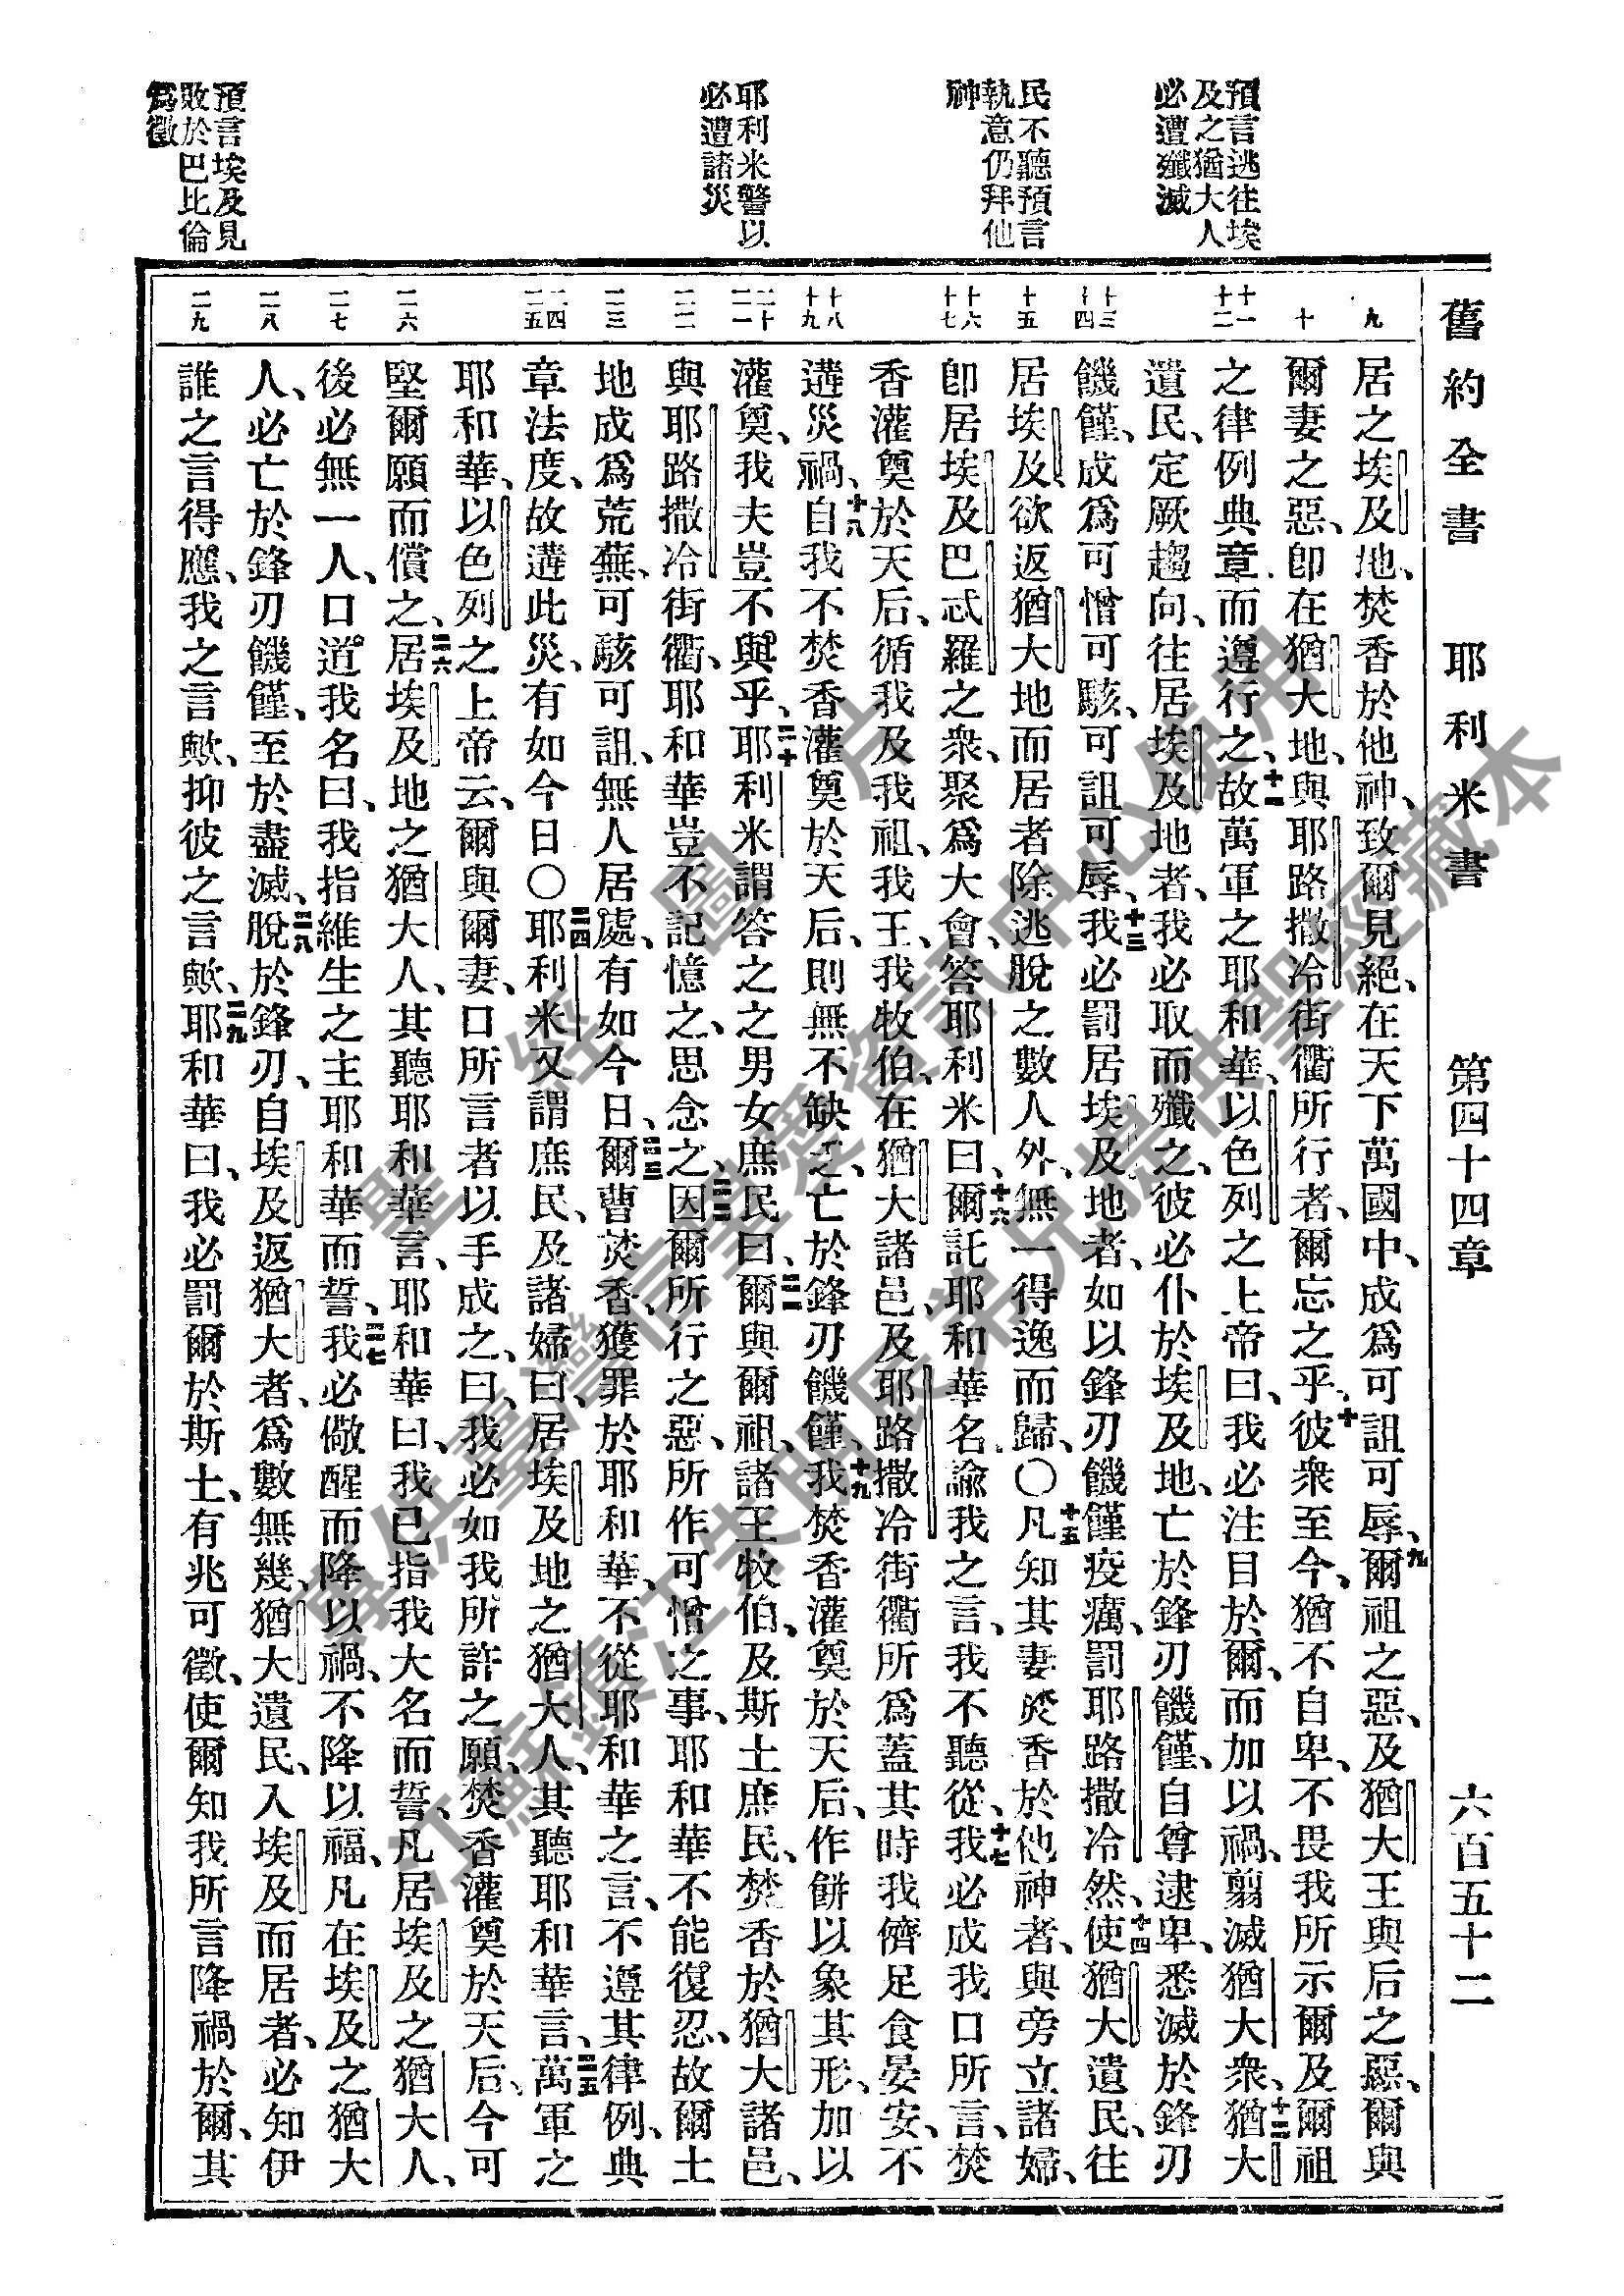 舊約全書　耶利米書　第四十四章　六百五十二
預言逃往埃
及之猶大人
必遭殲滅
民不聽預言
執意仍拜他
神
耶利米警以
必遭諸災
預言埃及見
敗於巴比倫
爲徵
九
十
十一
十二
十三
十四
十五
十六
十七
十八
十九
二十
二一
二二
二三
二四
二五
二六
二七
二八
二九
居之埃及地、焚香於他神、致爾見絕、在天下萬國中、成爲可詛可辱、九爾祖之惡、及猶大王與后之惡、爾與
爾妻之惡、卽在猶大地、與耶路撒冷街衢所行者、爾忘之乎、十彼衆至今、猶不自卑、不畏我所示爾及爾祖
之律例典章而遵行之、十一故萬軍之耶和華、以色列之上帝曰、我必注目於爾、而加以禍、翦滅猶大衆、十二猶大
遺民、定厥趨向、往居埃及地者、我必取而殲之、彼必仆於埃及地、亡於鋒刃饑饉、自尊逮卑、悉滅於鋒刃
饑饉、成爲可憎可駭、可詛可辱、十三我必罰居埃及地者、如以鋒刃饑饉疫癘、罰耶路撒冷然、十四使猶大遺民、往
居埃及欲返猶大地而居者、除逃脫之數人外、無一得逸而歸、〇十五凡知其妻焚香於他神者、與旁立諸婦、
卽居埃及巴忒羅之衆、聚爲大會、答耶利米曰、十六爾託耶和華名、諭我之言、我不聽從、十七我必成我口所言、焚
香灌奠於天后、循我及我祖、我王、我牧伯、在猶大諸邑、及耶路撒冷街衢所爲、蓋其時我儕足食晏安、不
遘災禍、十八自我不焚香灌奠於天后、則無不缺乏、亡於鋒刃饑饉、十九我焚香灌奠於天后、作餅以象其形、加以
灌奠、我夫豈不與乎、二十耶利米謂答之之男女庶民曰、二一爾與爾祖、諸王牧伯、及斯土庶民、焚香於猶大諸邑、
與耶路撒冷街衢、耶和華豈不記憶之、思念之、二二因爾所行之惡、所作可憎之事、耶和華不能復忍、故爾土
地成爲荒蕪、可駭可詛、無人居處、有如今日、二三爾曹焚香、獲罪於耶和華、不從耶和華之言、不遵其律例、典
章法度、故遘此災、有如今日〇二四耶利米又謂庶民、及諸婦曰、居埃及地之猶大人、其聽耶和華言、二五萬軍之
耶和華、以色列之上帝云、爾與爾妻、口所言者以手成之、曰、我必如我所許之願、焚香灌奠於天后、今可
堅爾願而償之、二六居埃及地之猶大人、其聽耶和華言、耶和華曰、我已指我大名而誓、凡居埃及之猶大人、
後必無一人、口道我名曰、我指維生之主耶和華而誓、二七我必儆醒而降以禍、不降以福、凡在埃及之猶大
人、必亡於鋒刃饑饉、至於盡滅、二八脫於鋒刃、自埃及返猶大者、爲數無幾、猶大遺民、入埃及而居者、必知伊
誰之言得應、我之言歟、抑彼之言歟、二九耶和華曰、我必罰爾於斯土、有兆可徵、使爾知我所言降禍於爾、其
聖經圖片
專供臺灣同望愛資訊中心使用
江蘇鎮江朱明辰弟兄提供聖經藏本